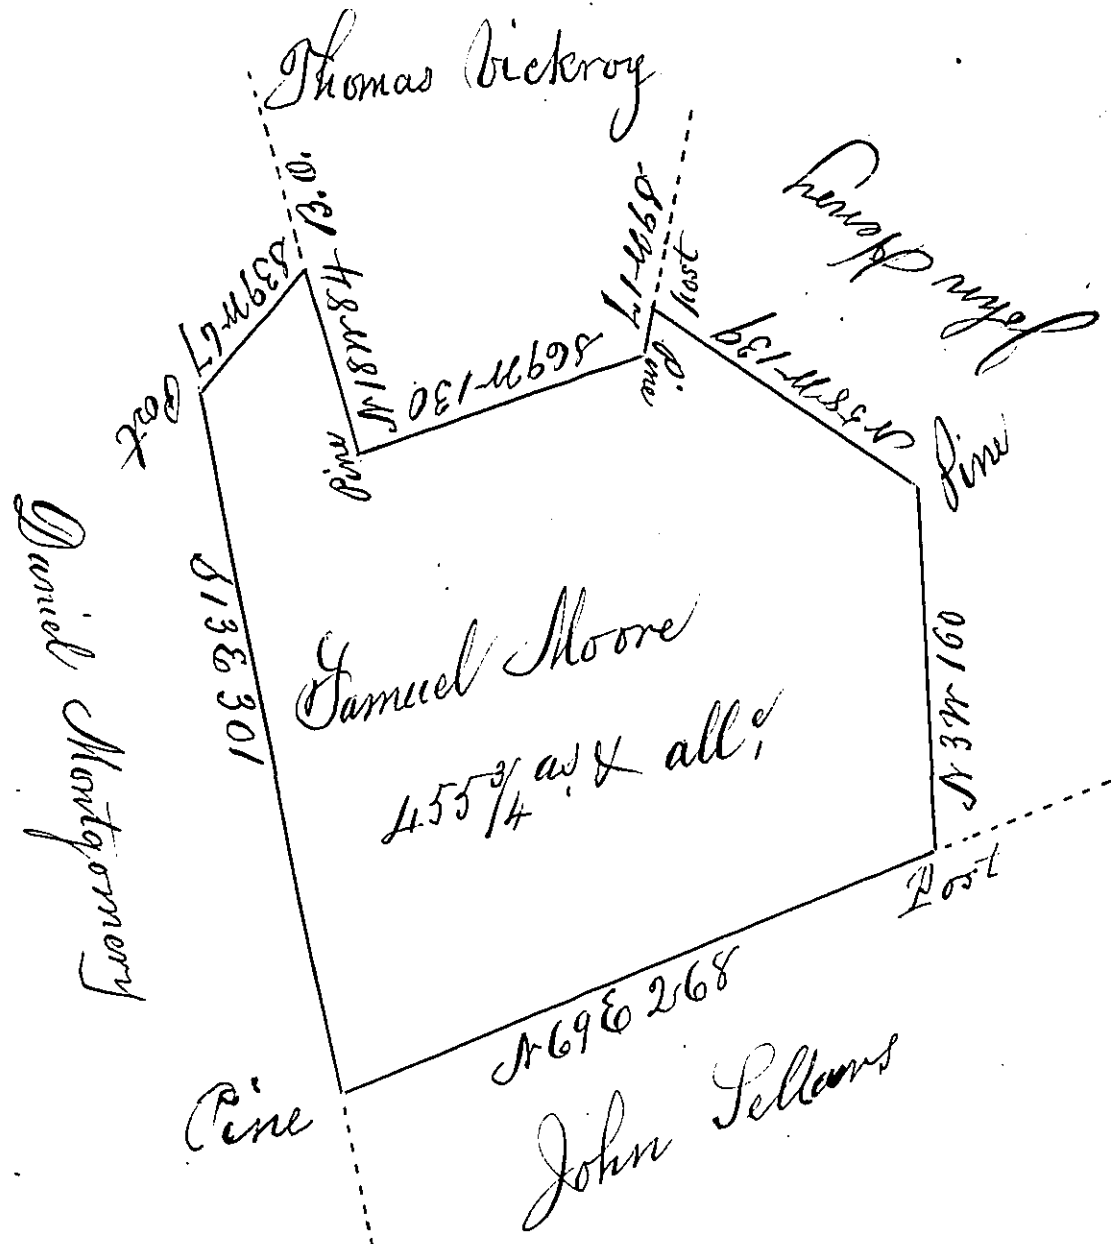 Thomas Vickroy
John Henry
S 39 W 67
N 18 W 84 B.O.
S 69 W 130
S 9 W 17
Post
Pine
N 58 W 139
Pine
Post
Pine
Daniel Montgomery
S 13 E 301
Samuel Moore
455 3/4 as. & all.
N 3 W 160
Post
N 69 E 268
Pine
John Sellars